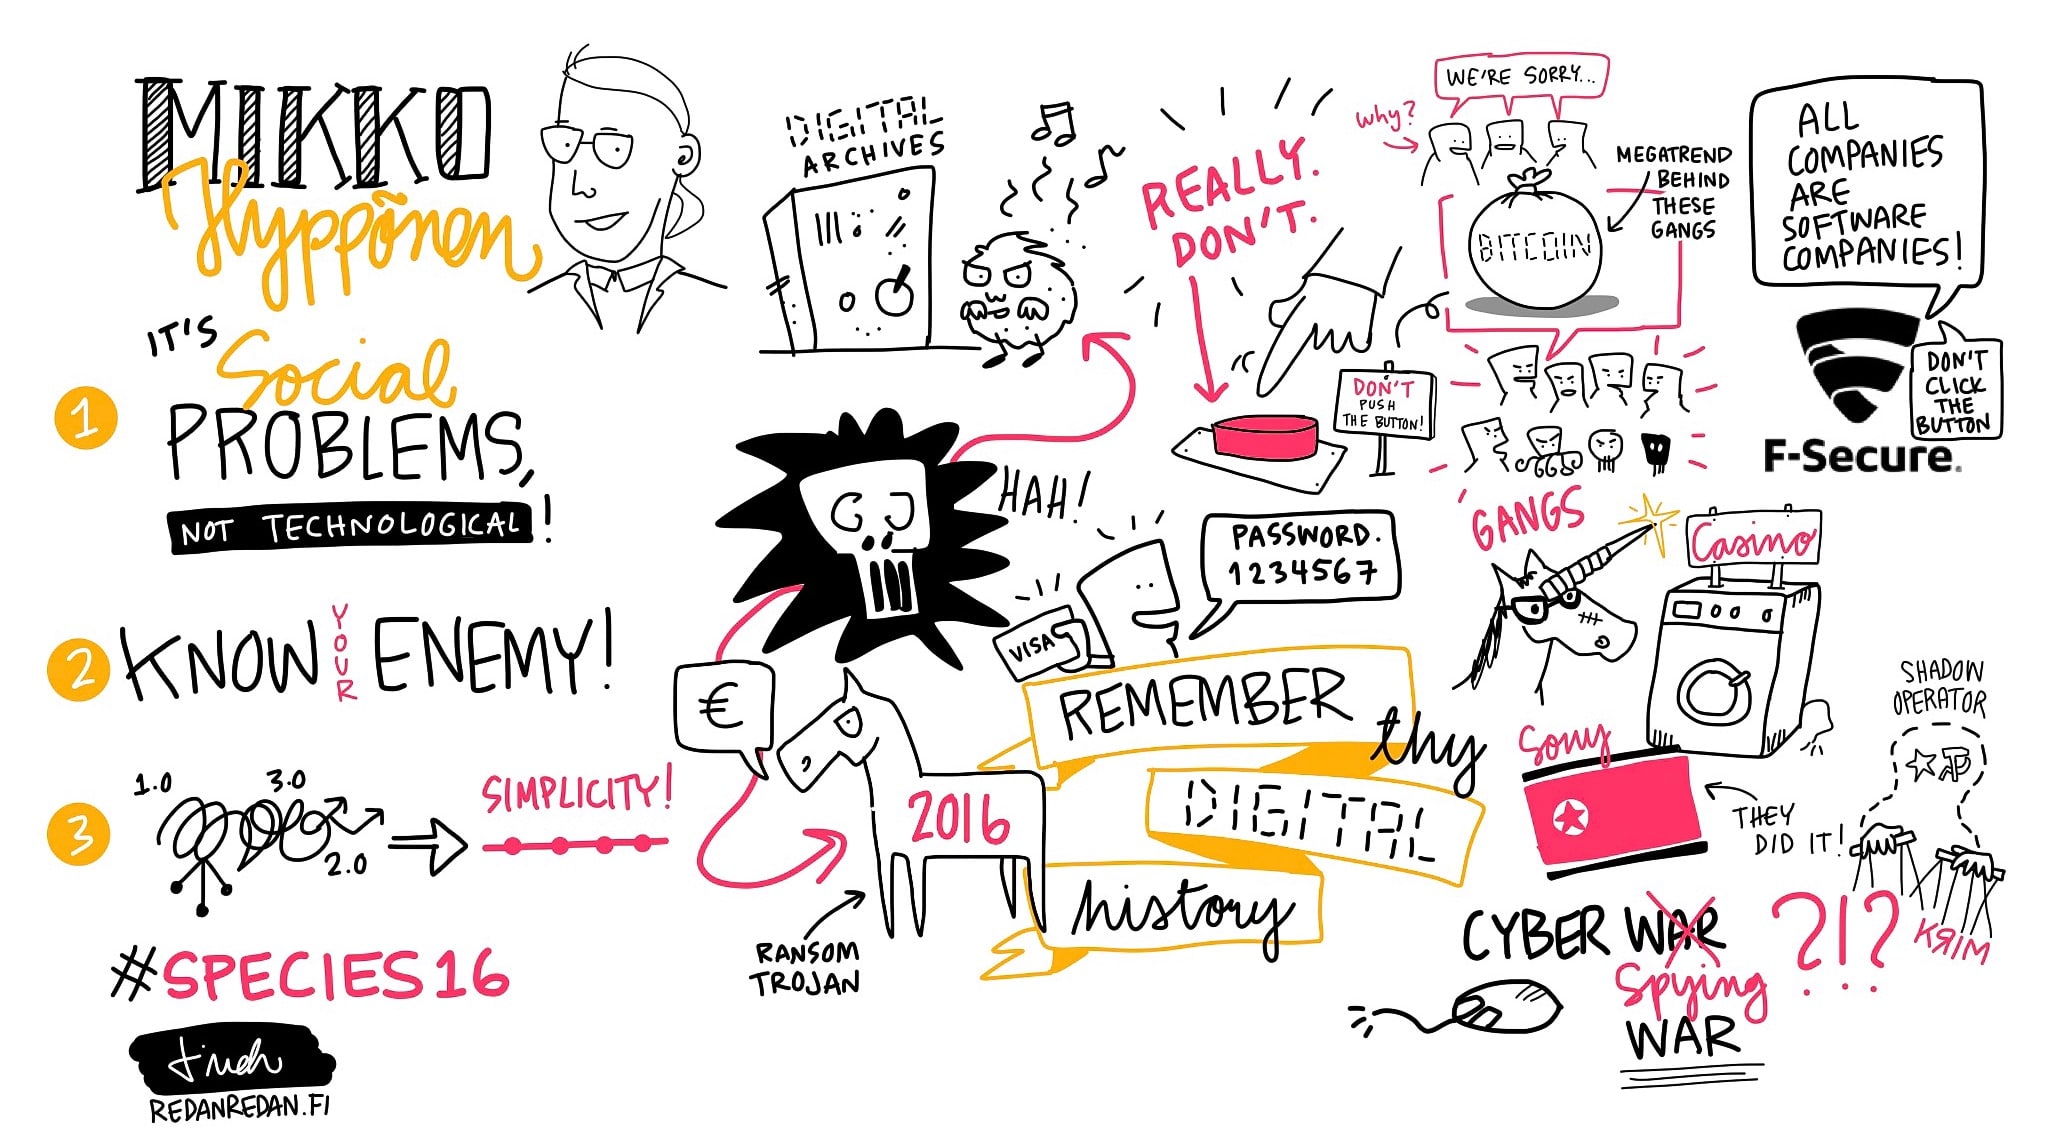 MIKKO
Hyppõnen
1
IT'S
Social
PROBLEMS,
NOT TECHNOLOGICAL!
2
KNOW YOUR ENEMY!
3
1.0
3.0
2.0
SIMPLICITY!
#SPECIES16
REDANREDAN.FI
DIGITAL
ARCHIVES
HAH!
€
2016
RANSOM
TROJAN
VISA
PASSWORD.
1234567
REMEMBER
thy
DIGITAL
history
REALLY.
DON'T.
DON'T
PUSH
THE BUTTON!
WE'RE SORRY...
why?
BITCOIN
MEGATREND
BEHIND
THESE
GANGS
GANGS
ALL
COMPANIES
ARE
SOFTWARE
COMPANIES!
DON'T
CLICK
THE
BUTTON
F-Secure.
Casino
Sony
THEY
DID IT!
SHADOW
OPERATOR
KЯIM
CYBER WAR
Spying
WAR
?!?